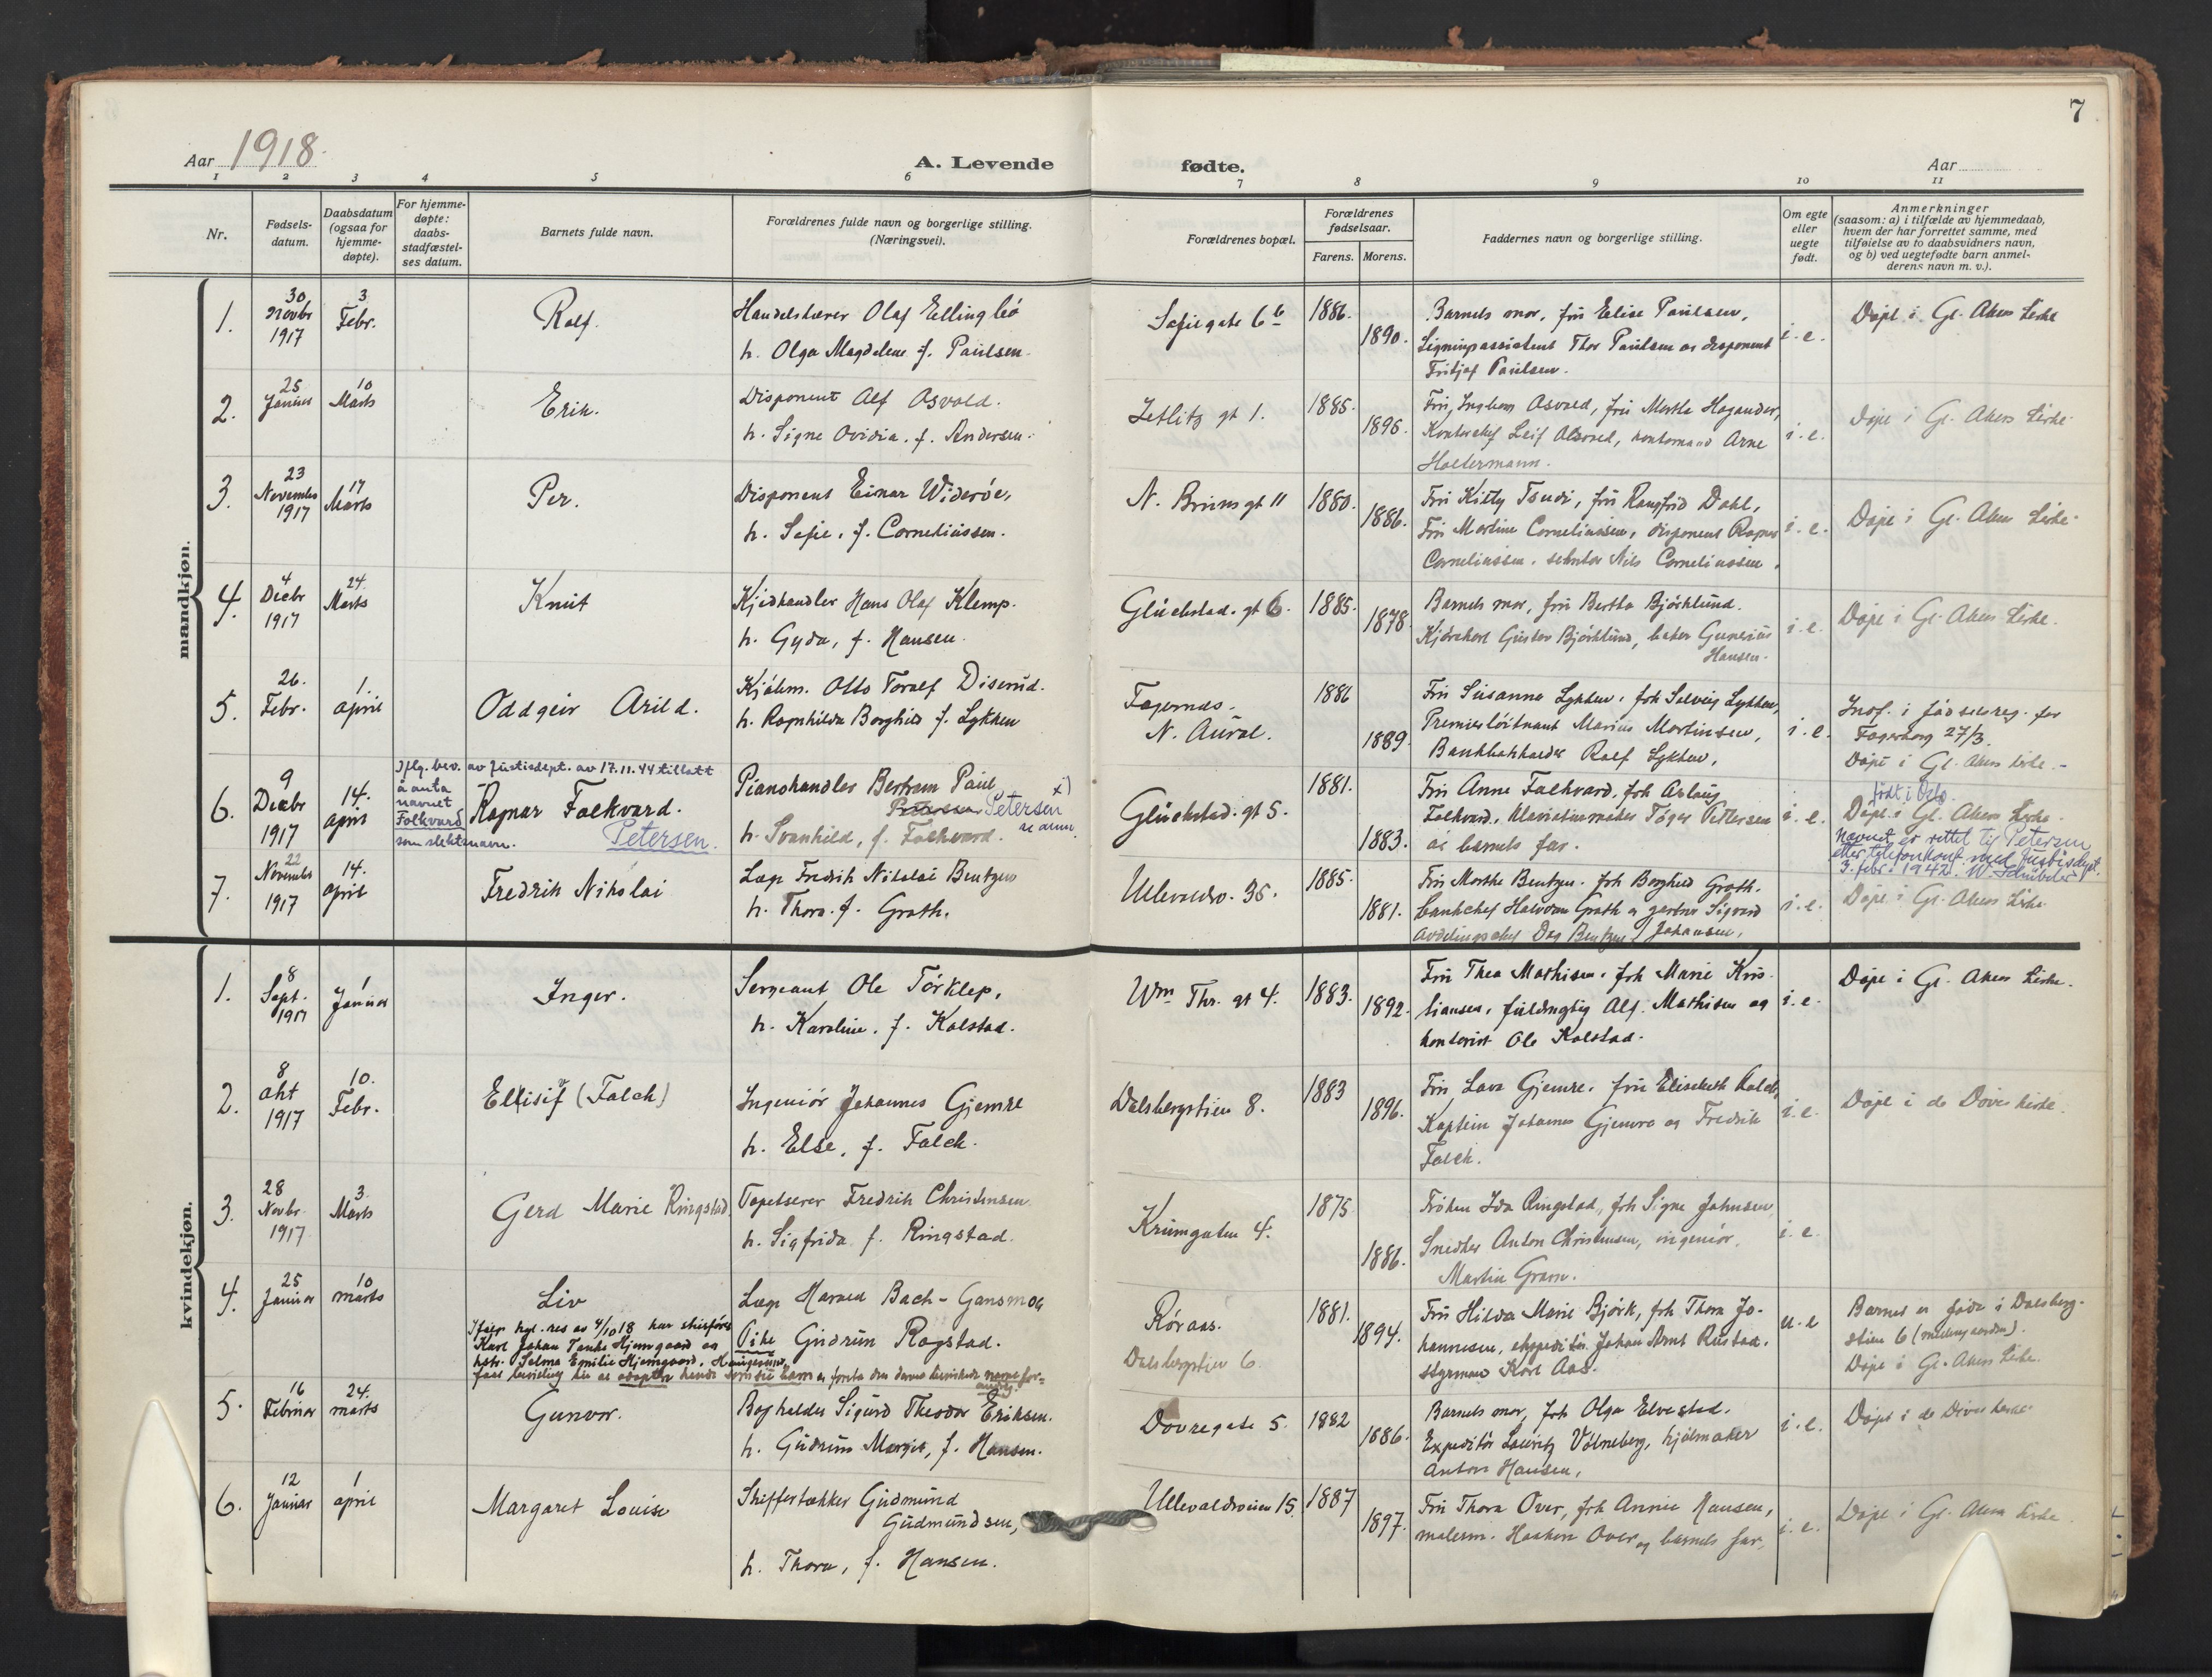 7
Aar 1918.
A. Levende fødte.
Aar
1 2 3 4 5 6 7 8 9 10 11
Nr.
Fødsels-
datum.
Daabsdatum
(ogsaa for
hjemme-
døpte).
For hjemme-
døpte:
daabs-
stadfæstel-
ses datum.
Barnets fulde navn.
Forældrenes fulde navn og borgerlige stilling.
(Næringsvei).
Forældrenes bopæl.
Forældrenes
fødselsaar.
Farens. Morens.
Faddernes navn og borgerlige stilling.
Om egte
eller
uegte
født.
Anmerkninger
(saasom: a) i tilfælde av hjemmedaab,
hvem der har forrettet samme, med
tilføielse av to daabsvidners navn,
og b) ved uegtefødte barn anmel-
derens navn m. v.).
mandkjøn.
1.
30
Novbr
1917
3
Febr.
Rolf.
Olaf Ellingbö
h. Olga Magdalene f. Paulsen.
Sofiegate 6b
1886.
1890.
Barnets mor, fru Elise Paulsen,
Thor Paulsen og disponent
Fritjof Paulsen.
i. e.
Døpt i Gl. Akers kirke
2.
25
Januar
10
Marts
Erik.
Disponent Alf Osvold.
h. Signe Ovidia. f. Andersen.
Zetlitz gt 1.
1885.
1896.
Fru Osvold, fru Martha
Leif Arne
Holtermann.
i. e.
Døpt i Gl. Akers kirke
3.
23
November
1917
17
Marts
Per.
Disponent Einar Wideröe,
h. Sofie, f. Corneliussen.
N. Bruns gt 11
1880.
1886.
Fru Kitty Tsudi, fru Rangfrid Dahl,
Fru Martine Corneliussen, disponent Ragnar
Corneliussen. Nils Corneliussen.
i. e.
Døpt i Gl. Akers kirke
4.
4
Decbr
1917
24.
Marts
Knut
Kjødhandler Hans Olaf Klemp.
h. Gyda, f. Hansen.
Glückstad. gt 6.
1885.
1878
Barnets mor, fru Bertha Björklund.
Gustav Björklund, baker Gunerius
Hansen.
i. e.
Døpt i Gl. Akers kirke.
5.
26.
Febr.
1.
april
Oddgeir Arild.
Kjøbm. Otto Toralf Diserud.
h. Ragnhilda Borghild f. Lykken
Fagernes.
N. Aurdal.
1886
1889
Fru Susanna Lykken, frk Solveig Lykken,
Premierlöitnant Marius Martinsen,
Bankbokholder Rolf Lykken,
i. e.
Innf. i fødselsreg. for
Fagerborg 27/3.
Døpt i Gl. Akers kirke.
6.
9
Decbr
1917
14.
april
Iflg. bev. av Justisdept. av 17.11.44 tillatt
å anta
navnet
Folkvard
som slektsnavn.
Ragnar Falkvard.
Petersen.
Pianohandler Bertram Paul x)
Petersen
se anm.
h. Svanhild, f. Falkvard.
Glückstad. gt 5.
1881.
1883.
Fru Anne Falkvard, frk Aslaug
Falkvard, Klaviaturmaker Tøger Pettersen
og barnets far.
i. e.
født i Oslo.
Døpt i Gl. Akers kirke.
Navnet er rettet til Petersen
etter telefonkonf. med Justisdept.
3. febr. 1942. W. Schübeler
7.
22
November
1917
14.
april
Fredrik Nikolai
Læge Fredrik Nikolai Bentzen
h. Thora. f. Groth.
Ullevaalsv. 35.
1885.
1881.
Fru Marthe Bentzen. frk Borghild Groth.
bankchef Halvdan Groth og gartner Sigvard
Avdelingschef Dag Bentzen / Johansen.
i. e.
Døpt i Gl. Akers kirke
kvindekjøn.
1.
8
Sept.
1917
1
Januar
Inger.
Sergeant Ole Törklep,
h. Karoline. f. Kolstad.
Wm Thr. gt 4.
1883.
1892.
Fru Thea Mathisen. frk Marie Kris-
tiansen, fuldmægtig Alf. Mathisen og
kontorist Ole Kolstad.
i. e.
Døpt i Gl. Akers kirke.
2.
8
Okt
1917
10.
Febr.
Ellisif (Falch)
Ingeniør Johannes Gjemre
h. Else, f. Falch.
Dalsbergstien 8.
1883
1896.
Fru Lava Gjemre. fru Elisabeth Falch,
Kaptein Johannes Gjemre og Fredrik
Falch.
i. e.
Døpt i de Døves kirke.
3.
28
Novbr.
1917
3.
Marts
Gerd Marie Ringstad
Tapetserer Fredrik Christensen
h. Sigfrida f. Ringstad.
Krumgaten 4.
1875
1886.
Frøken Ida Ringstad, frk Signe Johnsen,
Snedker Anton Christensen, ingeniør
Martin Gram.
i. e.
4.
25
Januar
10
marts
Liv
Ifølge kgl. res av 4/10 18 har
Karl Johan Tanke Hjemgaard og
hstr. Selma Emilie Hjemgaard, Haugesund,
faaet bevilling til at adoptere hende som sit barn
Læge Harald Bach-Gansmo og
Pike Gudrun Rogstad.
Röraas.
Dalsbergstien 6.
1881.
1894.
Fru Hilda Marie Björk, frk Thora Jo-
hannesen, ekspeditör Johan Arnt Rustad.
styrmand Karl Aas.
u. e
Barnet er født i Dalsberg-
stien 6
Døpt i Gl. Akers kirke.
5.
16
Februar
24.
marts
Gunvor.
Bogholder Sigurd Theodor Eriksen.
h. Gudrun Margit, f. Hansen.
Dovregate 5.
1882
1886.
Barnets mor, frk Olga Elvestad.
Expeditør Lauritz Volneberg, hjulmaker
Anton Hansen,
i. e.
Døpt i de Døves kirke.
6.
12
Januar
1
april
Margaret Louise
Skiffertækker Gudmund
Gudmundsen,
h. Thora, f. Hansen.
Ullevaalsveien 15.
1887
1897.
Fru Thora Over, frk Annie Hansen,
malerm. Haakon Over og barnets far,
i. e.
Døpt i Gl. Akers kirke